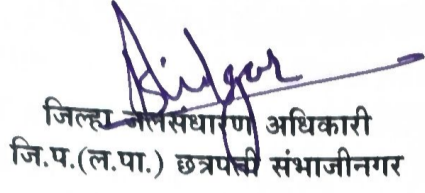 जिल्हा जलसंधारण अधिकारी
जि.प.(ल.पा.) छत्रपती संभाजीनगर